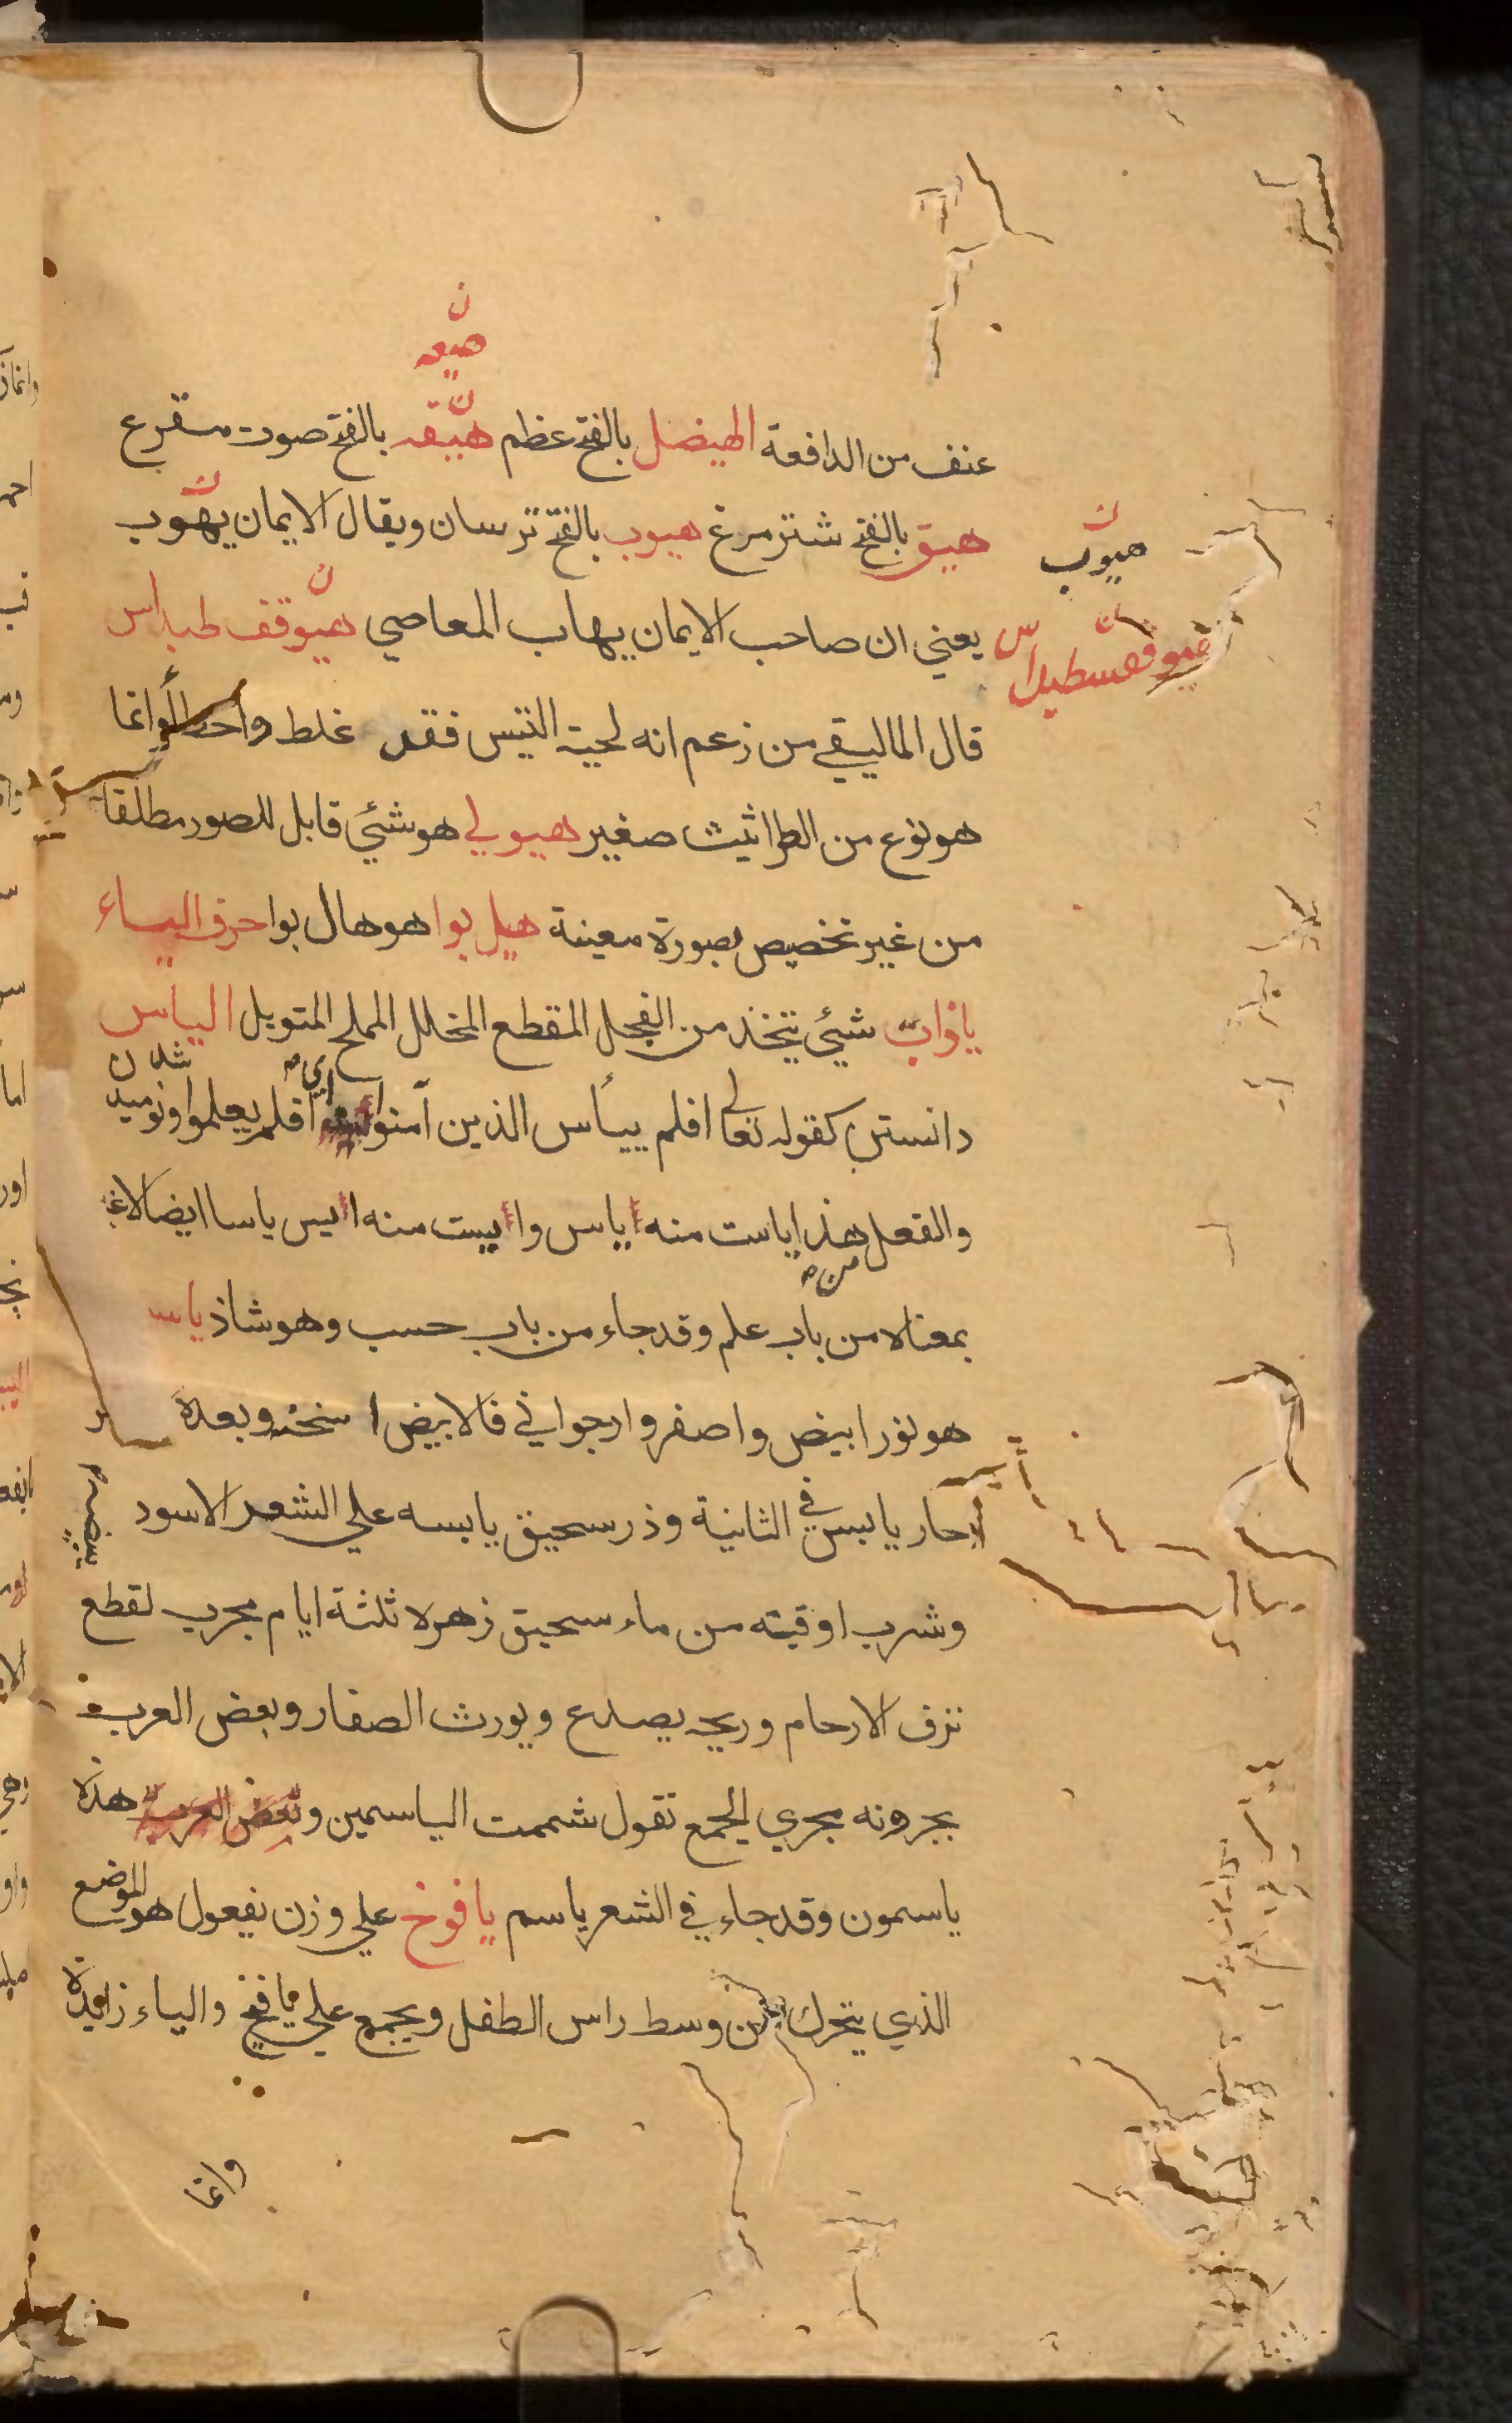 هيعه
عنف من الدافعة الهيضل بالفتح عظم هيقه بالفتح صوت مقرع
هيق بالفتح شتر مرغ هيوب بالفتح ترسان ويقال الايمان يهوب
هيوب
يعني ان صاحب الايمان يهاب المعاصي هيوقف طبداس
هيوقسطيداس
قال الماليقي من زعم انه لحية التيس فقد غلط واخطأ وانما
هو نوع من الطراثيث صغير هيولي هو شئي قابل للصور مطلقا
من غير تخصيص بصورة معينة هيل بوا هو هال بوا حرف الياء
ياذاب شئي يتخذ من الفجل المقطع المخلل المملح المتوبل الياس
دانستن كقوله تعالى افلم ييأس الذين آمنوا اي افلم يعلموا ونوميد شدن
والفعل هذا ياست منه اياس وايبست منه اييس ياسا ايضا لاغة
بمعناه من باب علم وقد جاء من باب حسب وهو شاذ ياسـ
هو نور ابيض واصفر وارجواني فالابيض اسخنه وبعده
حار يابس في الثانية وذر سحيق يابسه علي الشعر الاسود يبيضه
وشرب اوقيته من ماء سحيق زهره ثلثة ايام مجرب لقطع
نزف الارحام وريحه يصدع ويورث الصفار وبعض العرب
يجرونه مجري الجمع تقول شممت الياسمين وبعض العرب هذه
ياسمون وقد جاء في الشعر ياسم يافوخ علي وزن يفعول هو الموضع
الذي يتحرك من وسط راس الطفل ويجمع علي يافيخ والياء زايدة
وانما